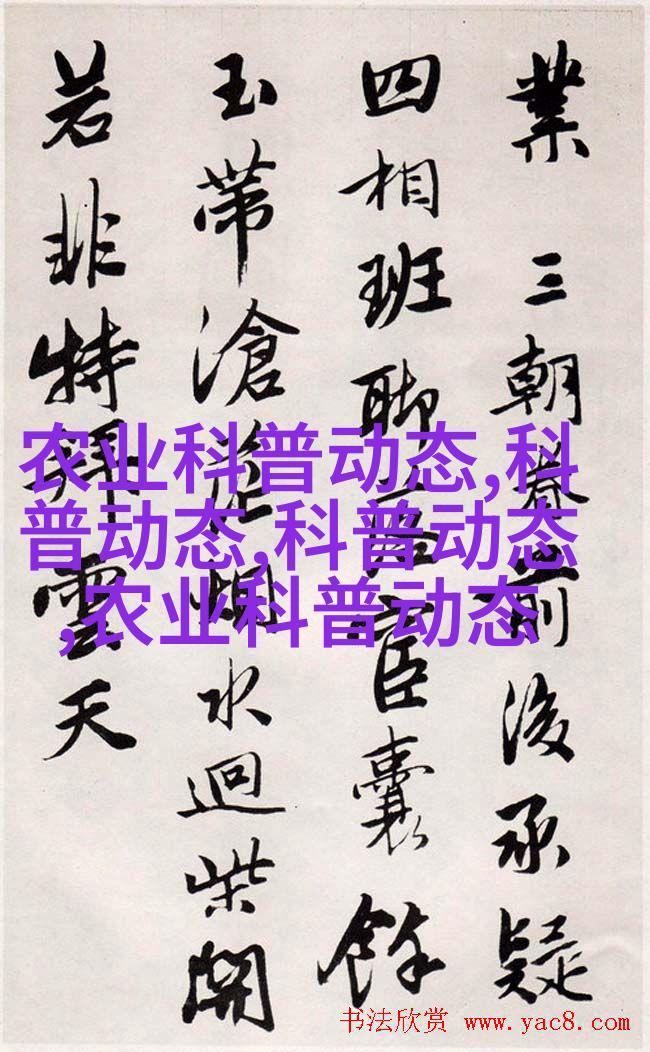 業 三朝眷前後承疑
四相班聯臣囊餘
玉帶滄水迴柴關
若非特拜雲天
农业科普动态,科
普动态,科普动态
,农业科普动态
书法欣赏 www.yac8.com